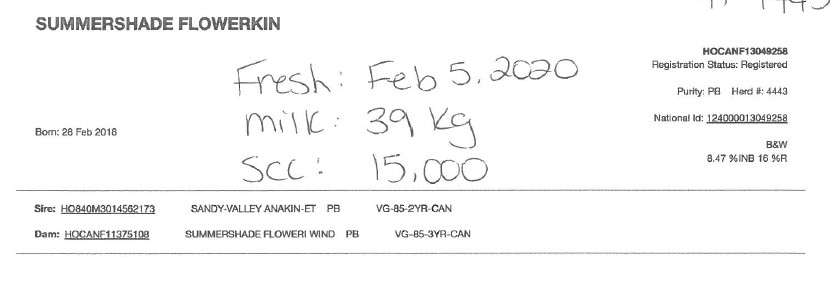 SUMMERSHADE FLOWERKIN
HOCANF13049258
Registration Status: Registered
Fresh: Feb 5, 2020
Purity: PB Herd #: 4443
milk: 39 kg
National Id: 124000013049258
Born: 28 Feb 2018
B&W
8.47 %INB 16 %R
SCC: 15,000
Sire: HO840M3014562173 SANDY-VALLEY ANAKIN-ET PB VG-85-2YR-CAN
Dam: HOCANF11375108 SUMMERSHADE FLOWERI WIND PB VG-85-3YR-CAN